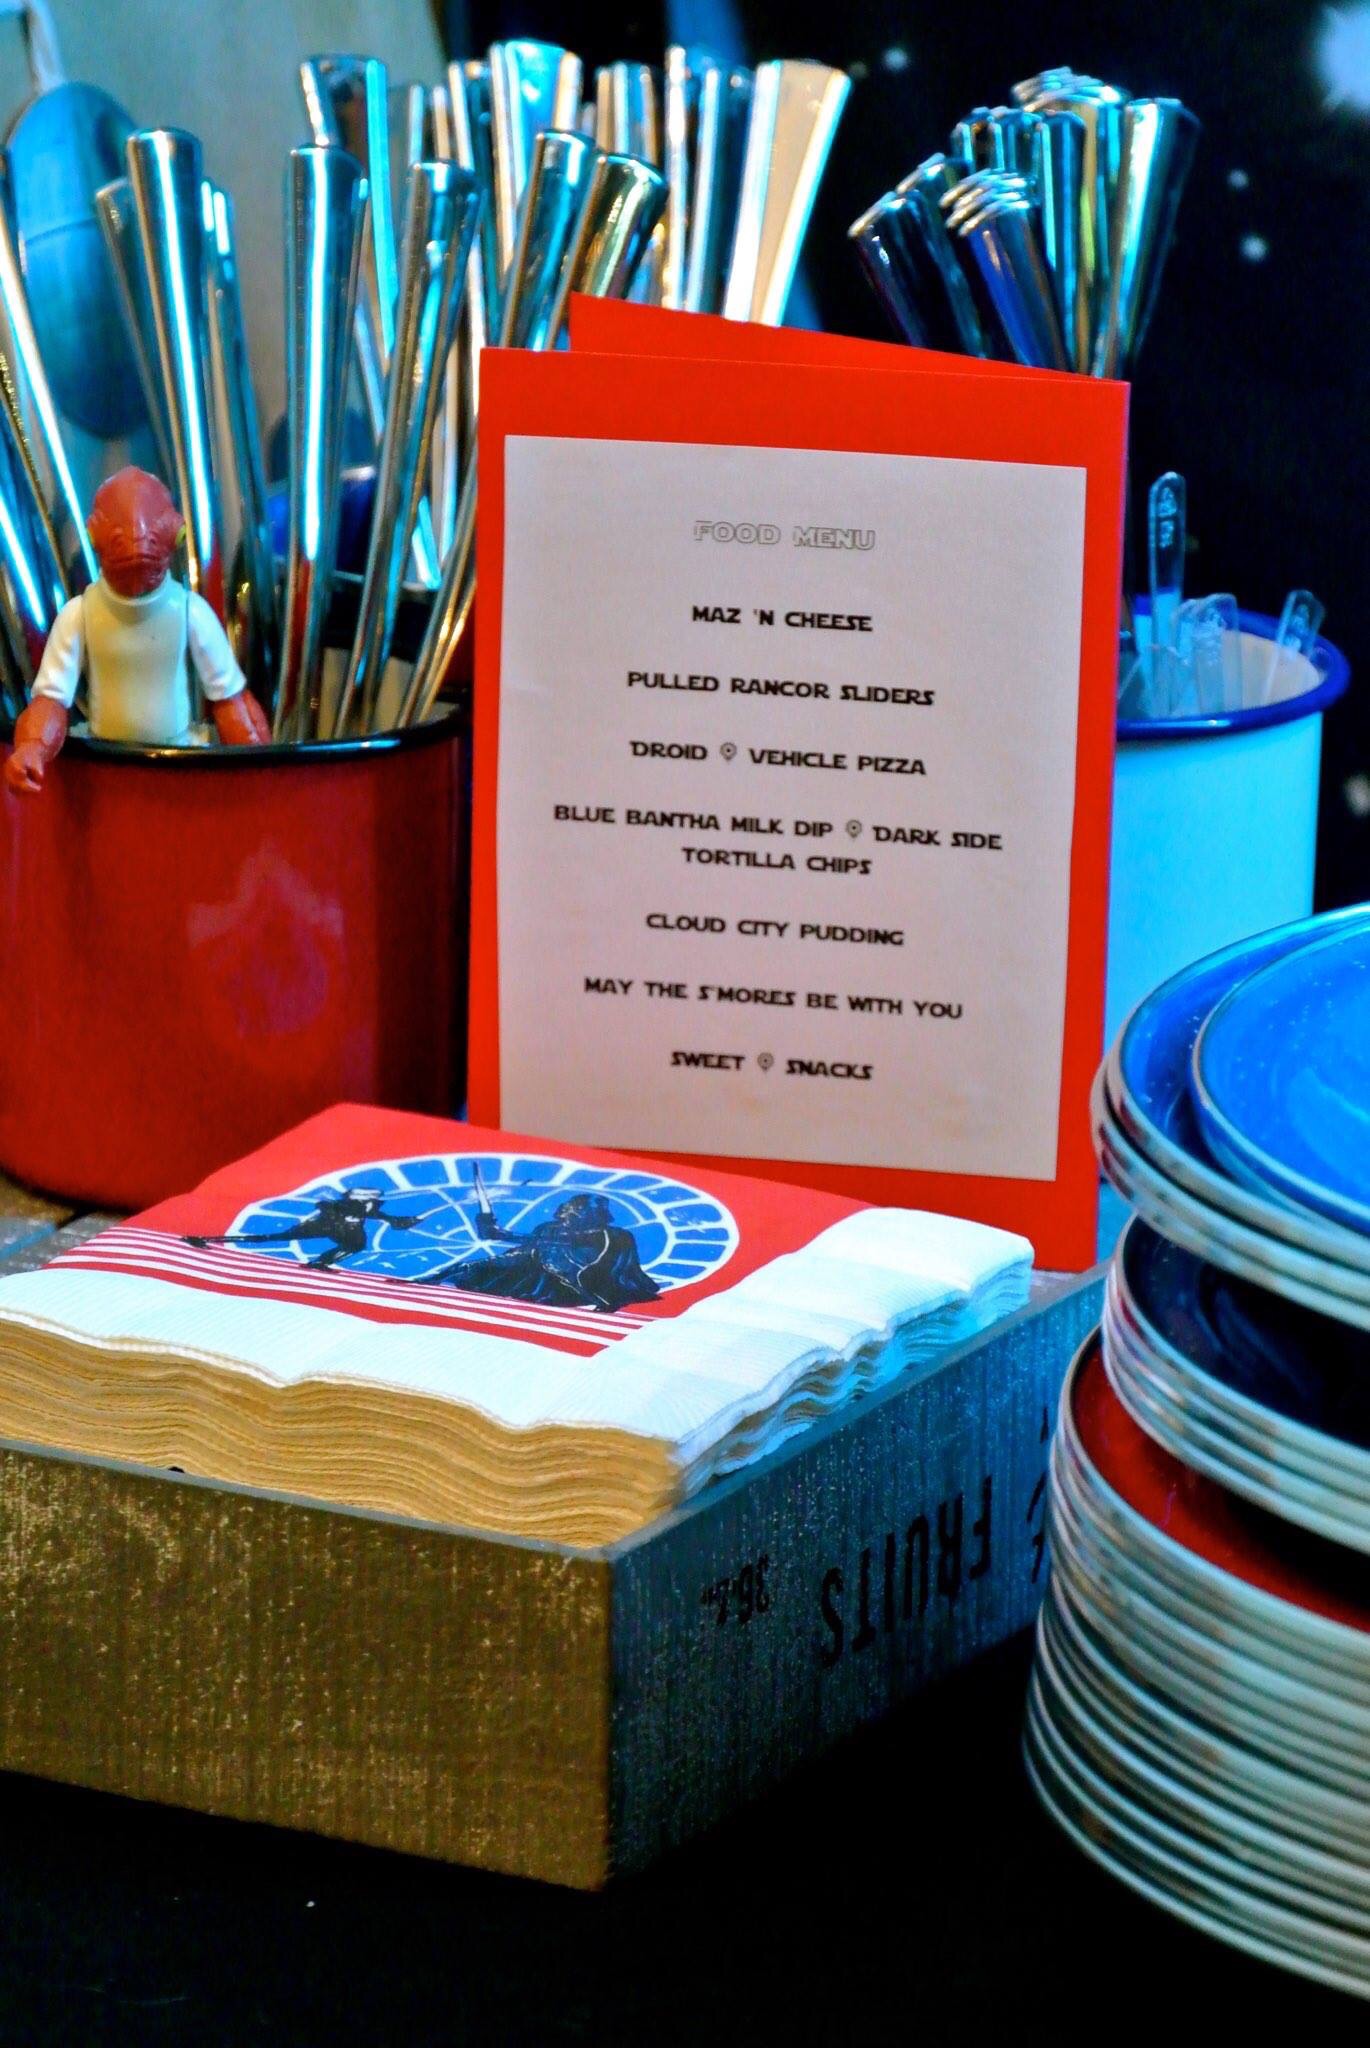 FOOD MENU
MAZ 'N CHEESE
PULLED RANCOR SLIDERS
DROID VEHICLE PIZZA
BLUE BANTHA MILK DIP DARK SIDE
TORTILLA CHIPS
CLOUD CITY PUDDING
MAY THE S'MORES BE WITH YOU
SWEET SNACKS
FRUITS